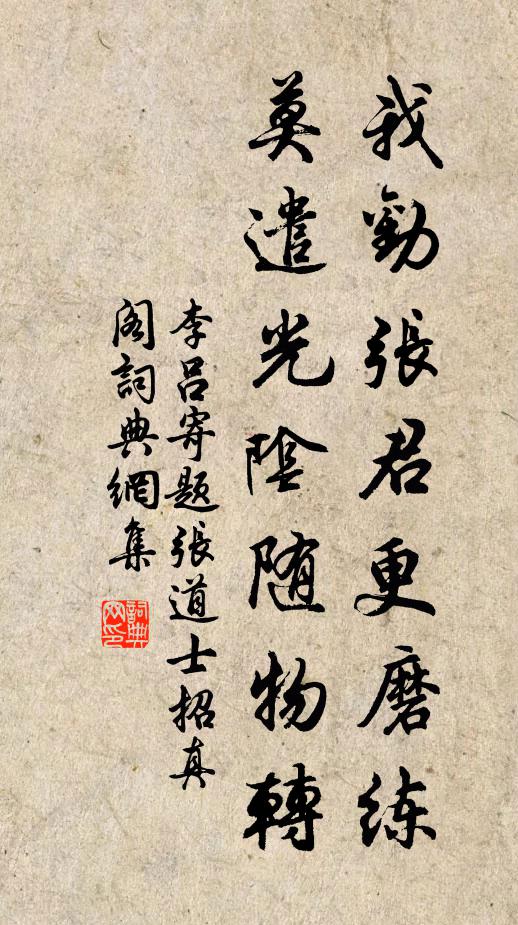 我勸張君更磨练
莫遣光陰随物轉
李吕寄题張道士招真
阁詞典網集
詞典
网印